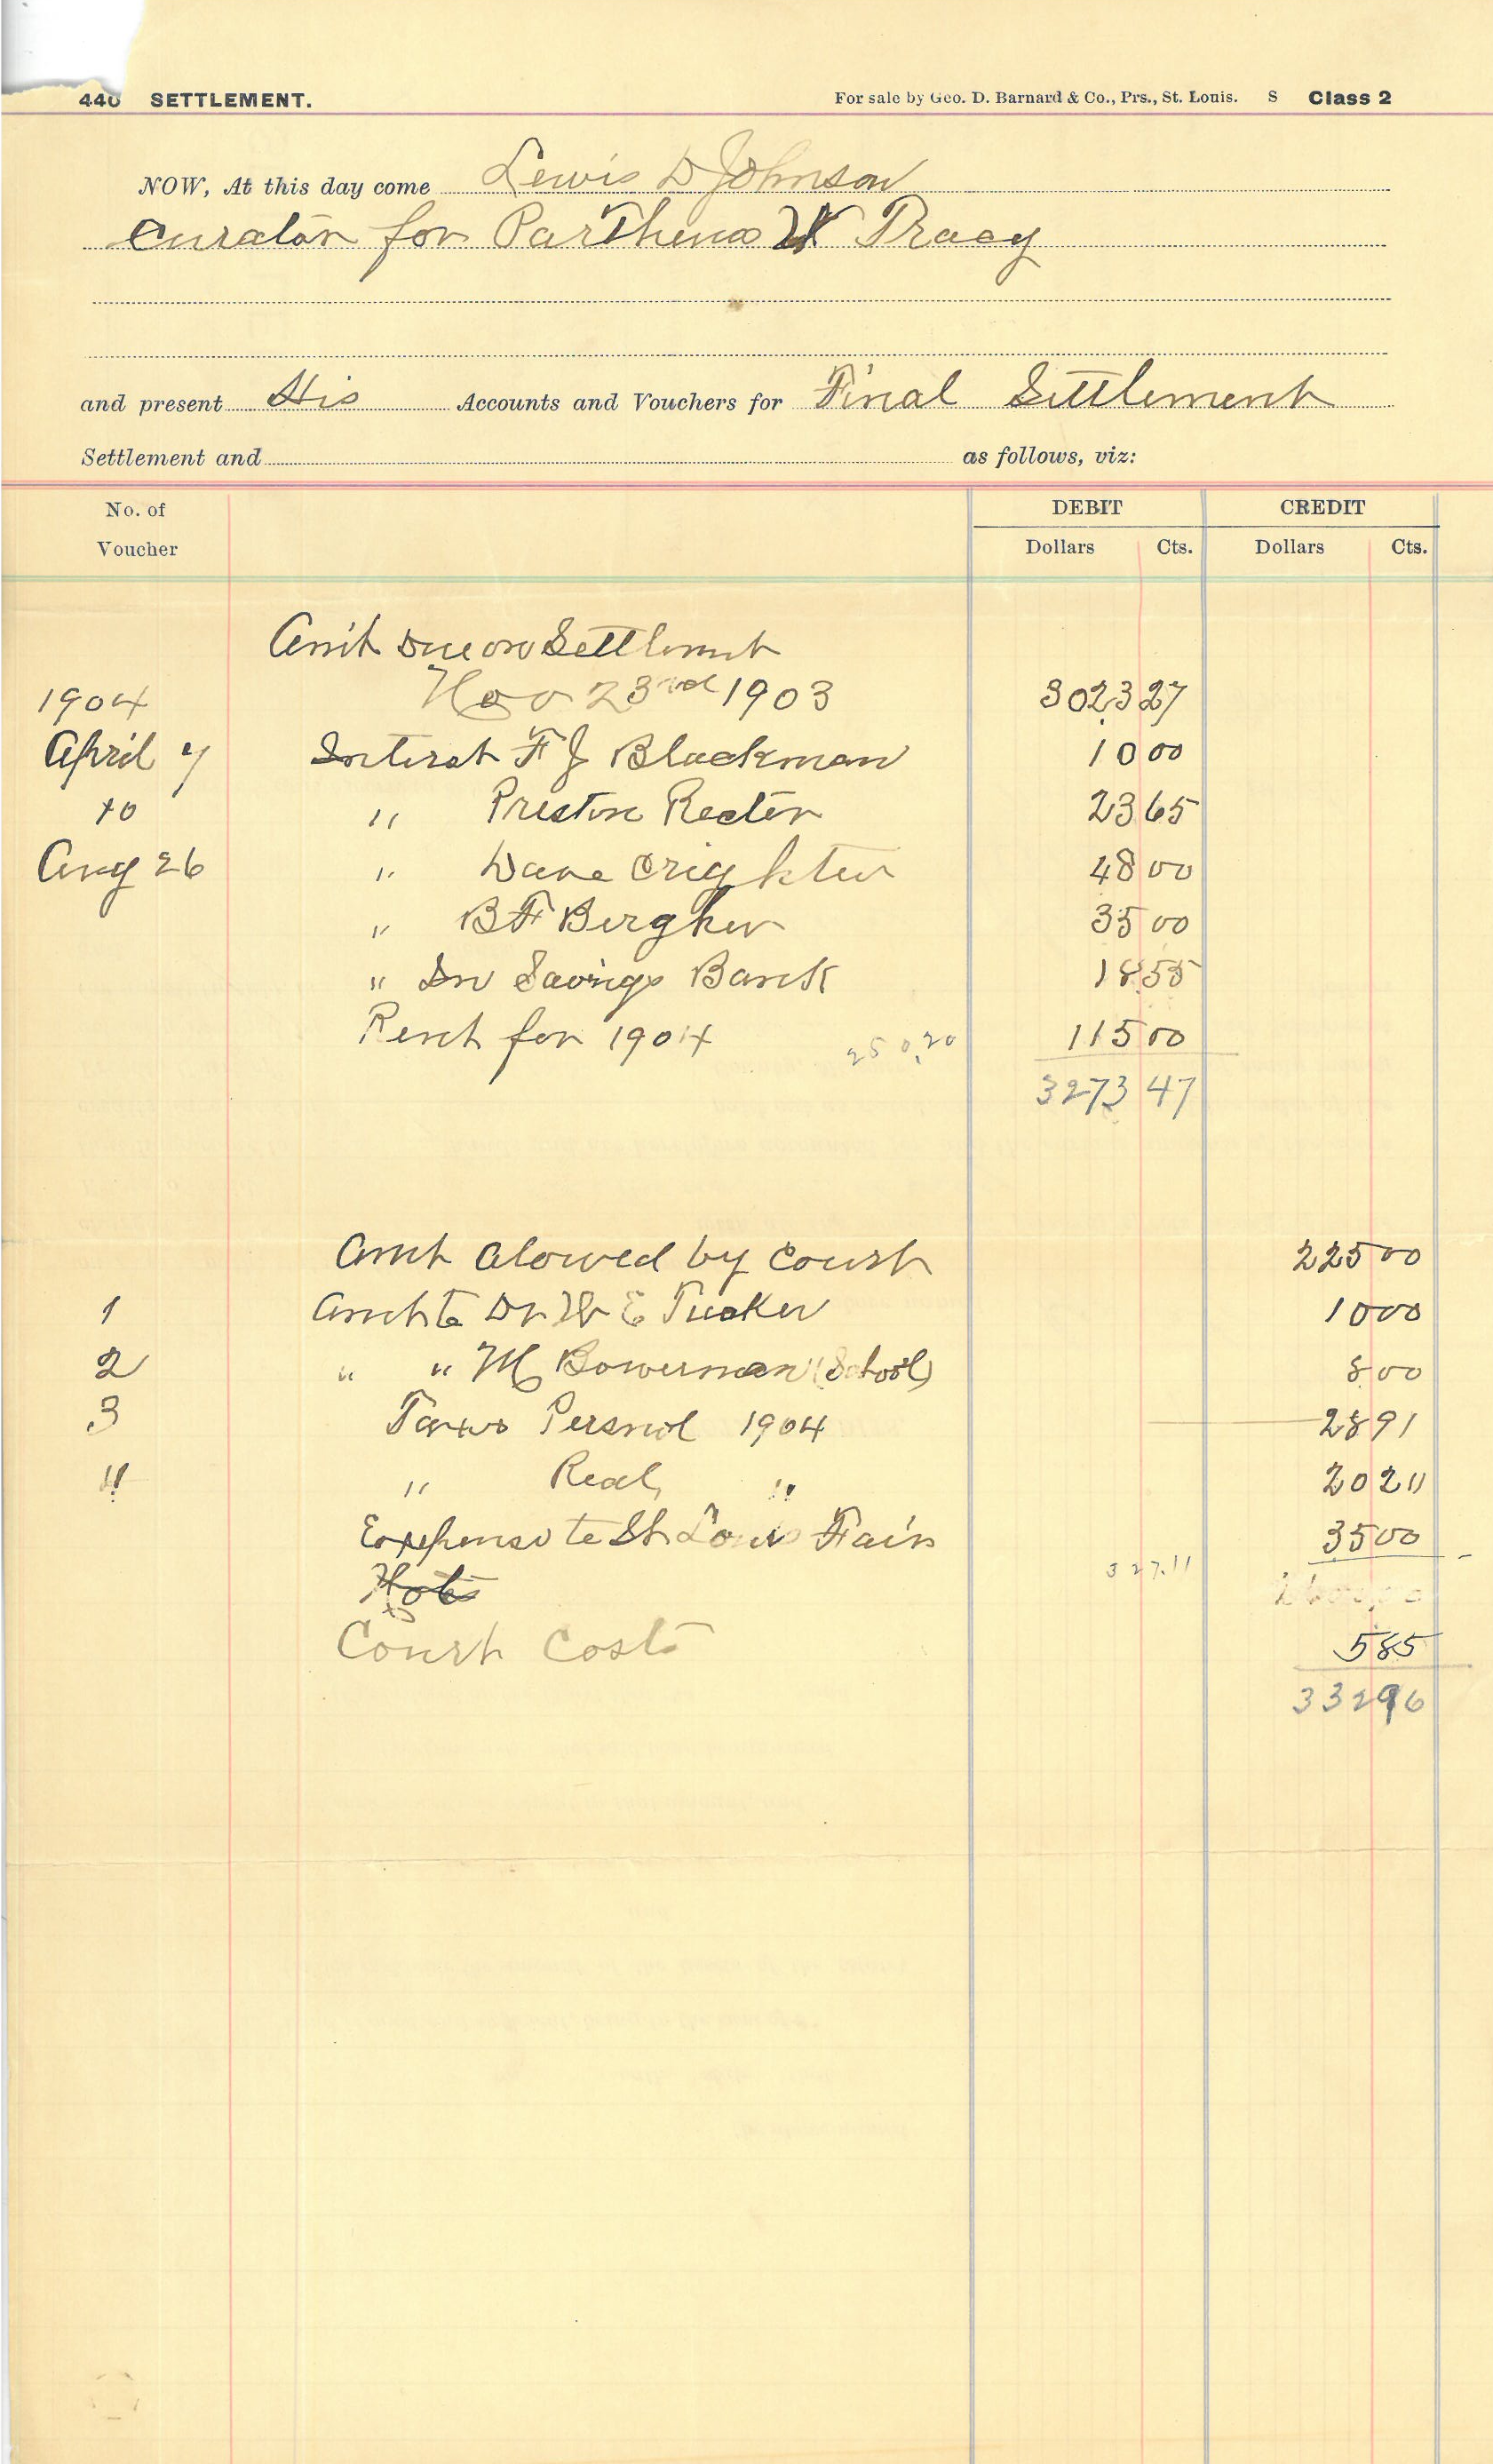 440 SETTLEMENT. For sale by Geo. D. Barnard & Co., Prs., St. Louis. S Class 2
NOW, At this day come Lewis D Johnson
Curator for Parthena W Tracy
and present His Accounts and Vouchers for Final Settlement
Settlement and as follows, viz:
No. of Voucher DEBIT CREDIT
Dollars Cts. Dollars Cts.
Am't Due on Settlemnt
1904 Nov 23rd 1903 3023 27
April 7 Interst F J Blackman 10 00
to " Preston Rector 23 65
Aug 26 " Dave Crighten 48 00
" B F Bergher 35 00
" In Savings Bank 18 55
Rent for 1904 250.20 115 00
3273 47
Amt Alowed by Court 225 00
1 Amt to Dr W E Tucker 10 00
2 " " M Bowerman (School) 8 00
3 Taxes Persnol 1904 28 91
4 " Real " 20 20
Expense to St Louis Fair 35 00
327.11
Court Costs 5 85
332 96